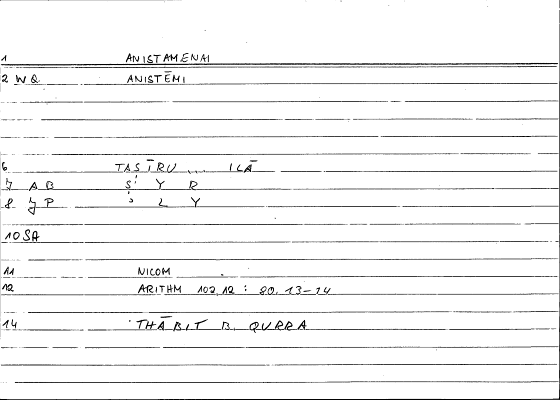 1 ANISTAMENAI
2 WQ ANISTĒMI
6 TAṢĪRU ... ILĀ
7 AB Ṣ Y R
8 JP ʾ L Y
10 SA
11 NICOM
12 ARITHM 102,12 : 80,13-14
14 THĀBIT B. QURRA